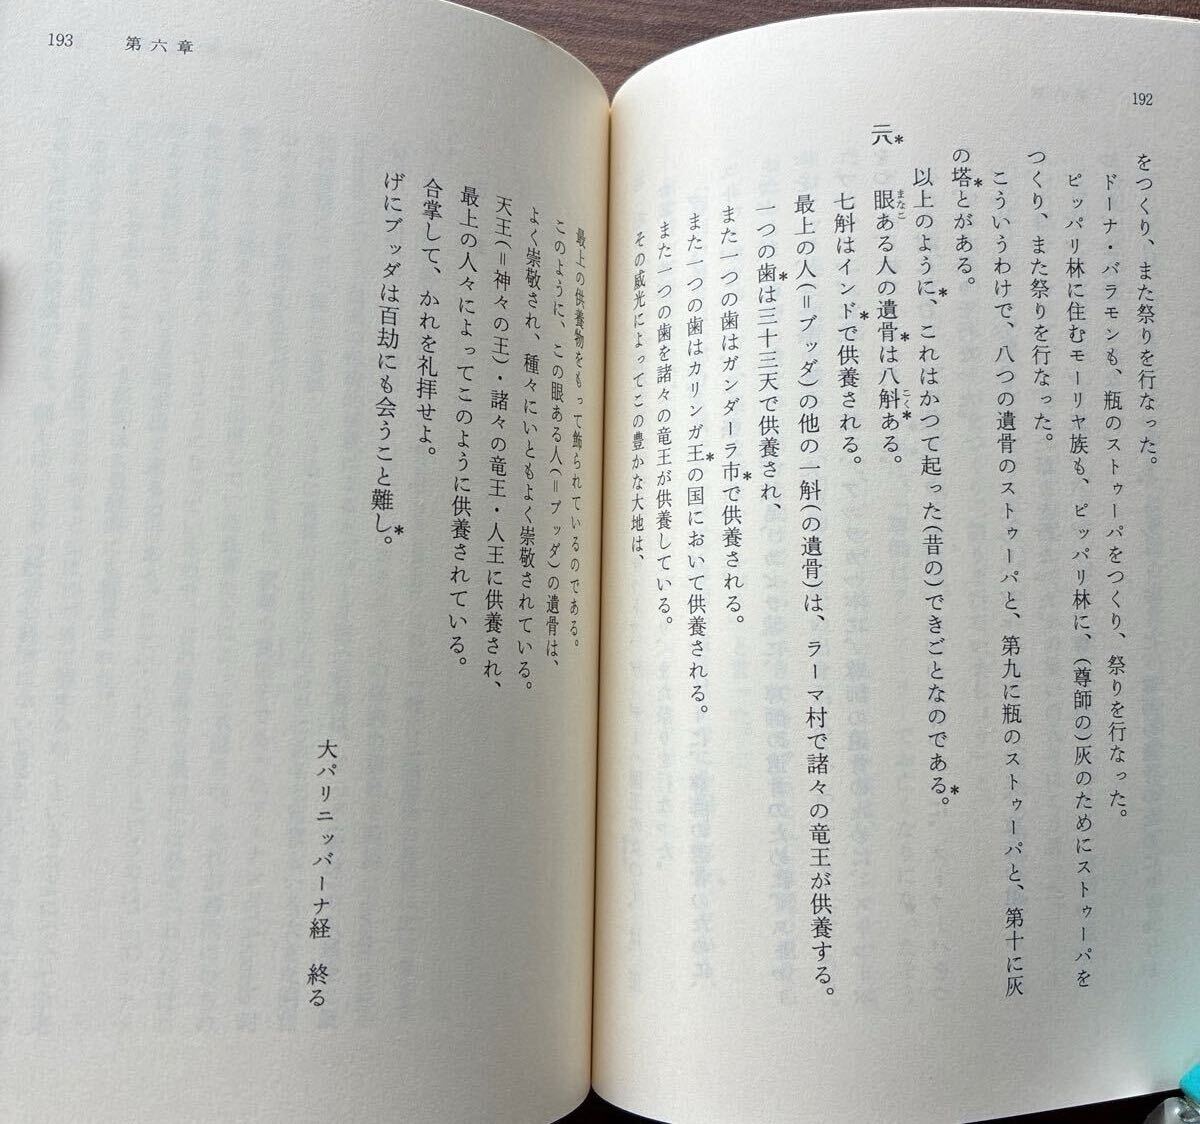 192
をつくり、また祭りを行なった。
ドーナ・バラモンも、瓶のストゥーパをつくり、祭りを行なった。
ピッパリ林に住むモーリヤ族も、ピッパリ林に、(尊師の)灰のためにストゥーパを
つくり、また祭りを行なった。
こういうわけで、八つの遺骨のストゥーパと、第九に瓶のストゥーパと、第十に灰
の塔*とがある。
以上のように*、これはかつて起った(昔の)できごとなのである*。
二八* 眼まなこある人の遺骨*は八斛こく*ある。
七斛はインド*で供養される。
最上の人(=ブッダ)の他の一斛(の遺骨)は、ラーマ村で諸々の竜王が供養する。
一つの歯*は三十三天で供養され、
また一つの歯はガンダーラ市*で供養される。
また一つの歯はカリンガ王*の国において供養される。
また一つの歯を諸々の竜王が供養している。
その威光によってこの豊かな大地は、
193 第六章
最上の供養物をもって飾られているのである。
このように、この眼ある人(=ブッダ)の遺骨は、
よく崇敬され、種々にいともよく崇敬されている。
天王(=神々の王)・諸々の竜王・人王に供養され、
最上の人々によってこのように供養されている。
合掌して、かれを礼拝せよ。
げにブッダは百劫にも会うこと難し*。
大パリニッバーナ経 終る